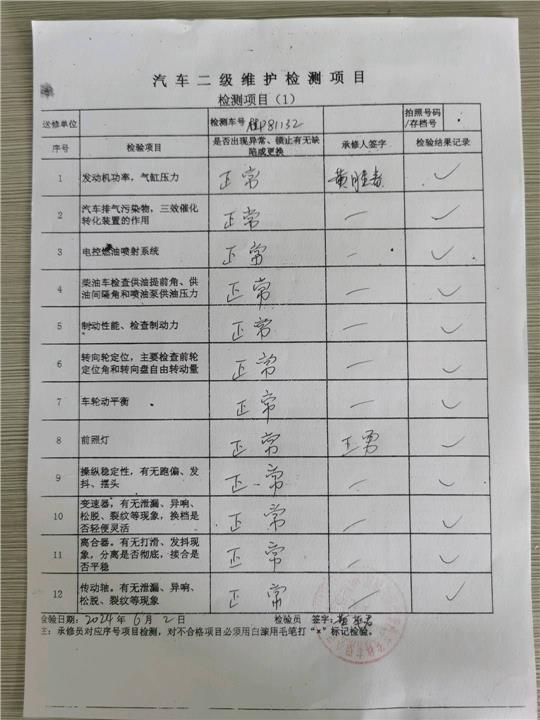 汽车二级维护检测项目
检测项目（1）
送修单位 检测车号 P81132 拍照号码/存档号
序号 检验项目 是否出现异常、锁止有无缺陷或更换 承修人签字 检验结果记录
1 发动机功率，气缸压力 正常 ✓
2 汽车排气污染物，三效催化 正常 — ✓
转化装置的作用
3 电控燃油喷射系统 正常 — ✓
4 柴油车检查供油提前角、供 正常 — ✓
油间隔角和喷油泵供油压力
5 制动性能、检查制动力 正常 — ✓
6 转向轮定位，主要检查前轮 正常 — ✓
定位角和转向盘自由转动量
7 车轮动平衡 正常 — ✓
8 前照灯 正常 王勇 ✓
9 操纵稳定性，有无跑偏、发 正常 — ✓
抖、摆头
10 变速器，有无泄漏、异响、 正常 — ✓
松脱、裂纹等现象，换档是
否轻便灵活
11 离合器。有无打滑、发抖现 正常 — ✓
象，分离是否彻底，接合是
否平稳
12 传动轴。有无泄漏、异响、 正常 — ✓
松脱、裂纹等现象
检验日期：2024年6月2日 检验员 签字：
注：承修员对应序号项目检测，对不合格项目必须用白漆用毛笔打“×”标记检验。